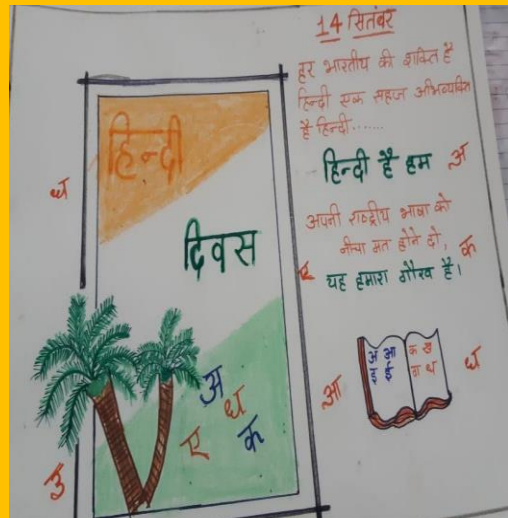 14 सितंबर
हर भारतीय की शक्ति है
हिन्दी एक सहज अभिव्यक्ति
है हिन्दी......
हिन्दी है हम
अ
अपनी राष्ट्रीय भाषा को
नीचा मत होने दो,
क
ए
यह हमारा गौरव है।
हिन्दी
दिवस
ध
अ
ए ध क
उ
आ
अ आ
इ ई
क ख
ग घ
ध